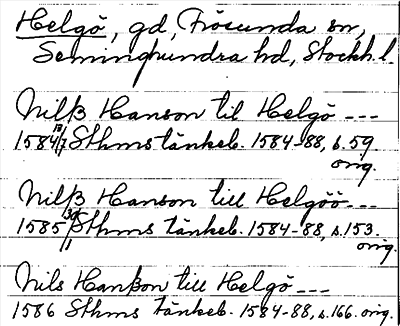 Helgö, gd, Frösunda sn,
Seminghundra hd, Stockh.l.
Nilß Hanson til Helgö ---
1584 13/7 Sthms tänkeb. 1584-88, s.59
orig.
Nilß Hanson till Helgöö ---
1585 30/1 Sthms tänkeb. 1584-88, s.153.
orig.
Nils Hanßon till Helgö ---
1586 Sthms tänkeb. 1584-88, s.166. orig.